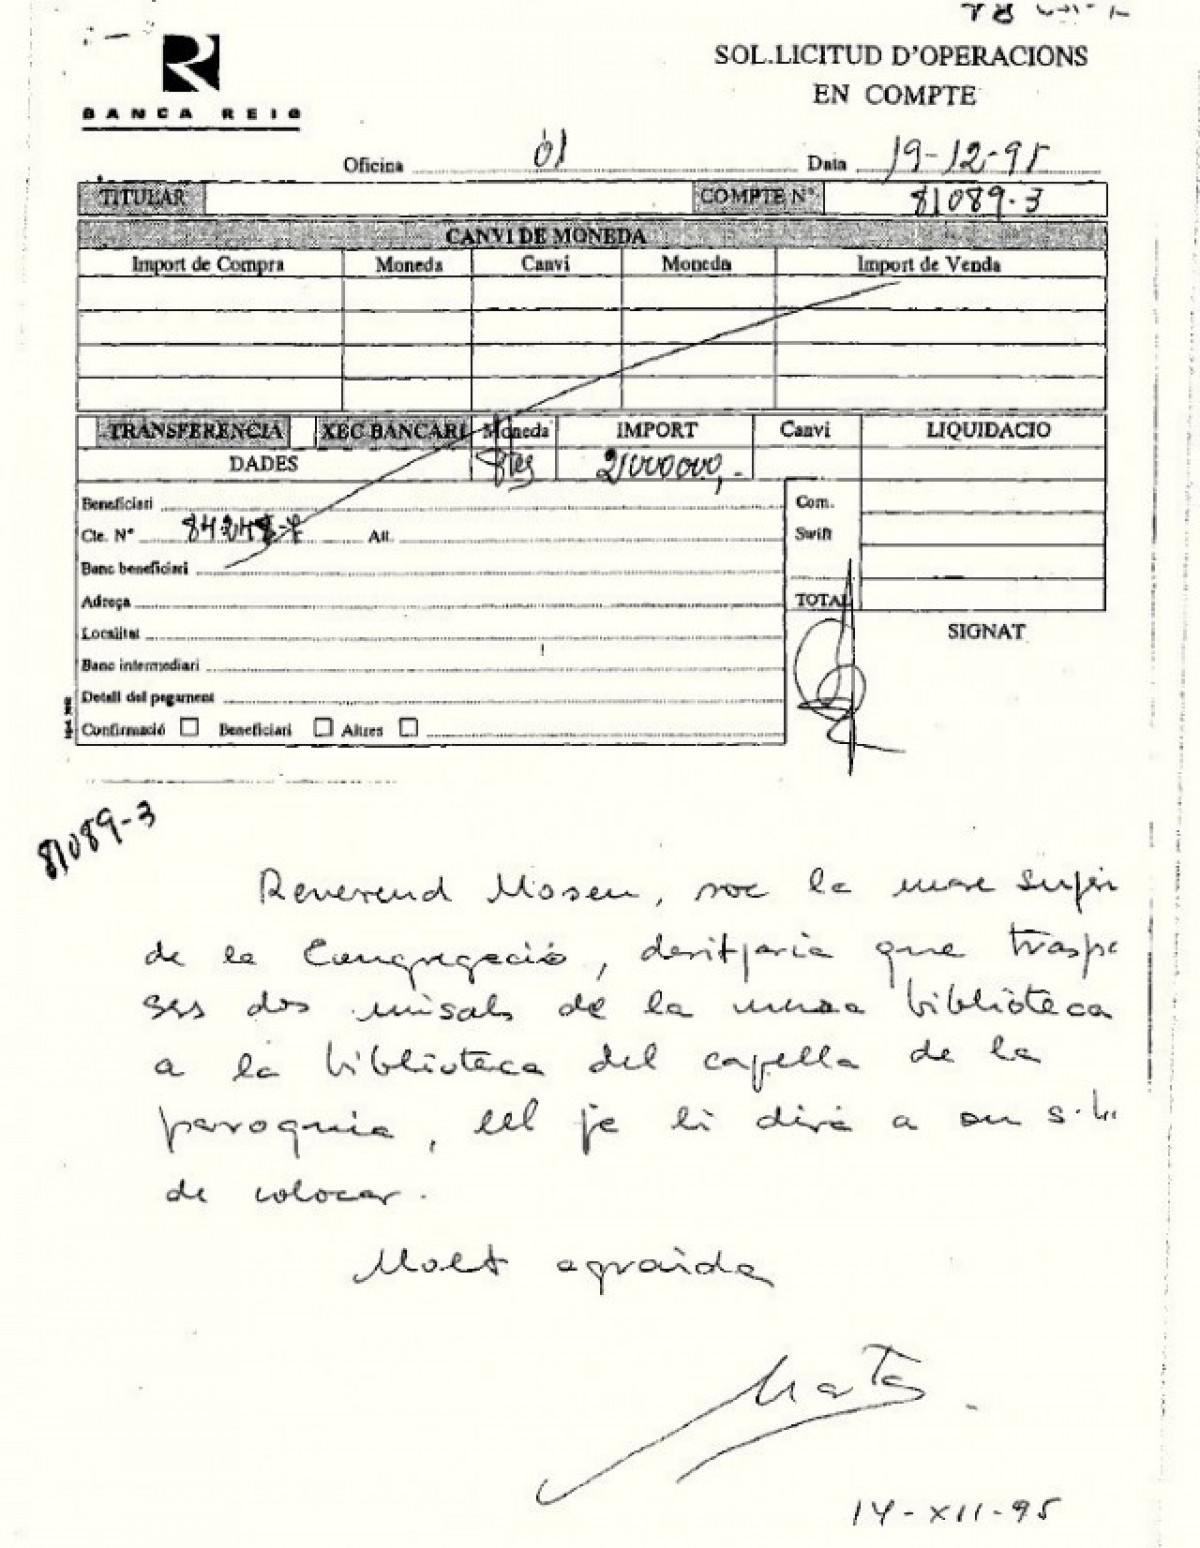 BANCA REIG
SOL.LICITUD D'OPERACIONS
EN COMPTE
Oficina 01 Data 19-12-95
TITULAR COMPTE Nº 81089-3
CANVI DE MONEDA
Import de Compra Moneda Canvi Moneda Import de Venda
TRANSFERENCIA XEC BANCARI Moneda IMPORT Canvi LIQUIDACIO
DADES Ptes 2000000,-
Beneficiari Com.
Cte. Nº 84248-7 All. Swift
Banc beneficiari
Adreça TOTAL
Localitat SIGNAT
Banc intermediari
Detall del pagament
Confirmació Beneficiari Altres
81089-3
Reverend Mosen, soc la mare super
de la Congregació, desitjaria que traspa
ses dos misals de la meva biblioteca
a la biblioteca del capella de la
paroquia, ell ja li dirà a on s.h.
de colocar.
Molt agraida
Marta
14-XII-95